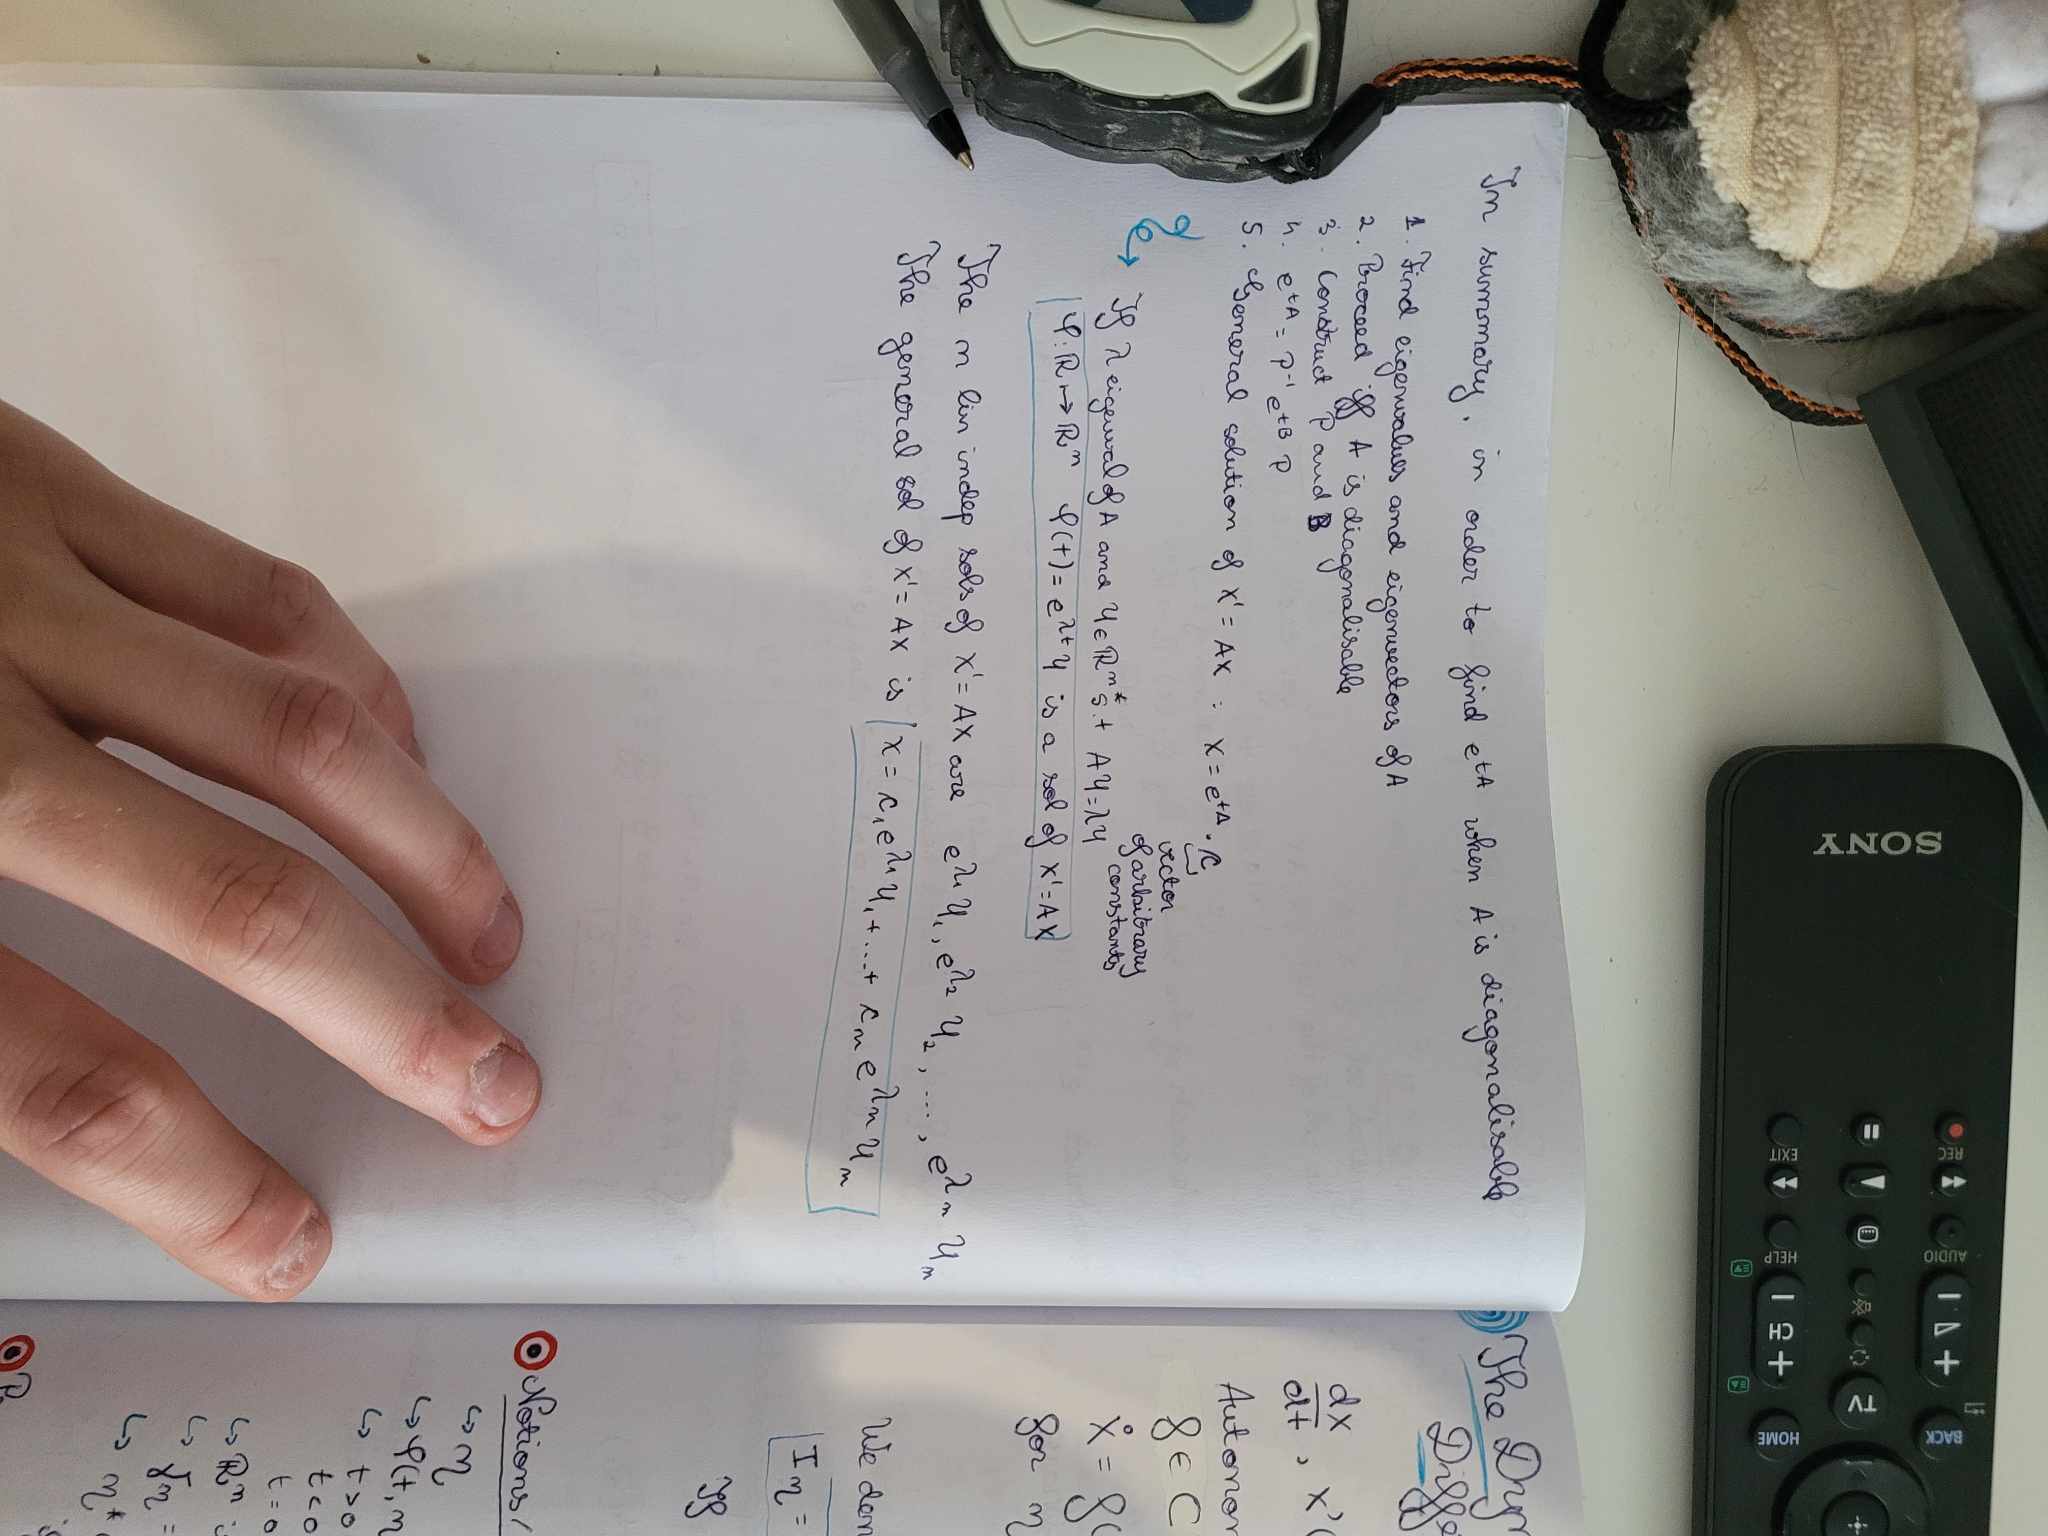 In summary, in order to find e^tA when A is diagonalisable
1. Find eigenvalues and eigenvectors of A
2. Proceed iff A is diagonalisable
3. Construct P and B
4. e^tA = P^-1 e^tB P
5. General solution of X' = AX : X = e^tA · C
vector
of arbitrary
constants
If λ eigenval of A and u ∈ ℝ^n* s.t Au = λu
φ: ℝ ↦ ℝ^n φ(t) = e^λt u is a sol of X' = AX
The n lin indep sols of X' = AX are e^λ1 u_1, e^λ2 u_2, ..., e^λn u_n
The general sol of X' = AX is X = c_1 e^λ1 u_1 + ... + c_n e^λn u_n
The Dyn
Diffe
dx/dt, X'(
Autonom
f ∈ C
ẋ = f(
for η
We den
I_η =
If
Notions/
↳ η
↳ φ(t, η
↳ t > 0
t < 0
t = 0
↳ ℝ^n
↳ γ_η =
↳ η*
SONY
REC
AUDIO
EXIT
HELP
CH
TV
BACK
HOME